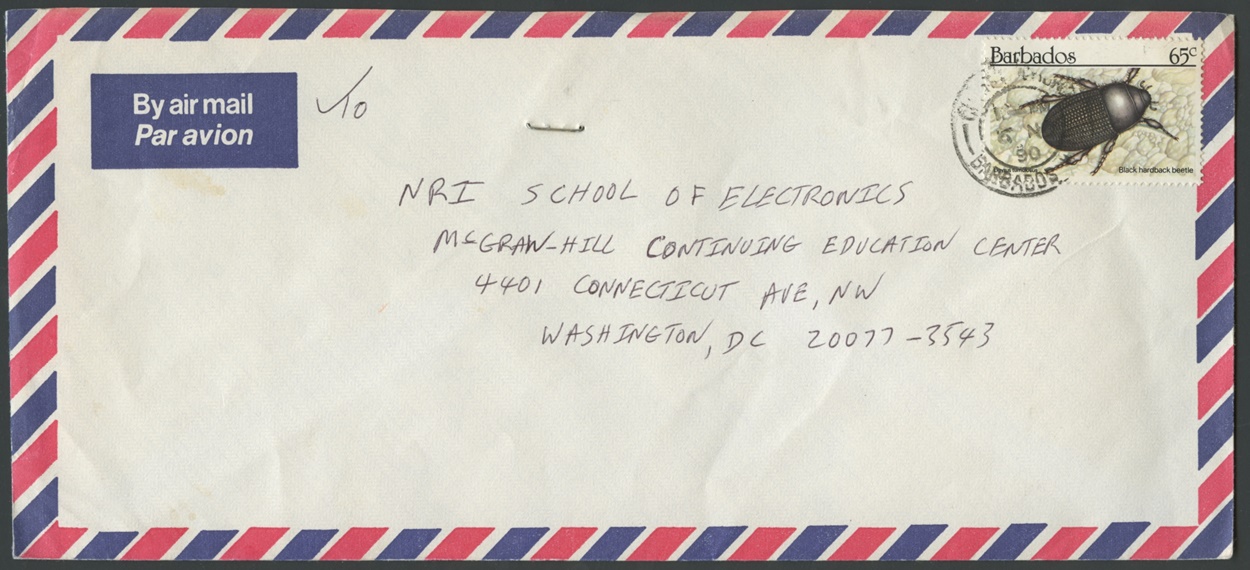 By air mail
Par avion
Barbados 65c
Black hardback beetle
90
BARBADOS
NRI SCHOOL OF ELECTRONICS
McGRAW-HILL CONTINUING EDUCATION CENTER
4401 CONNECTICUT AVE, NW
WASHINGTON, DC 20077-3543